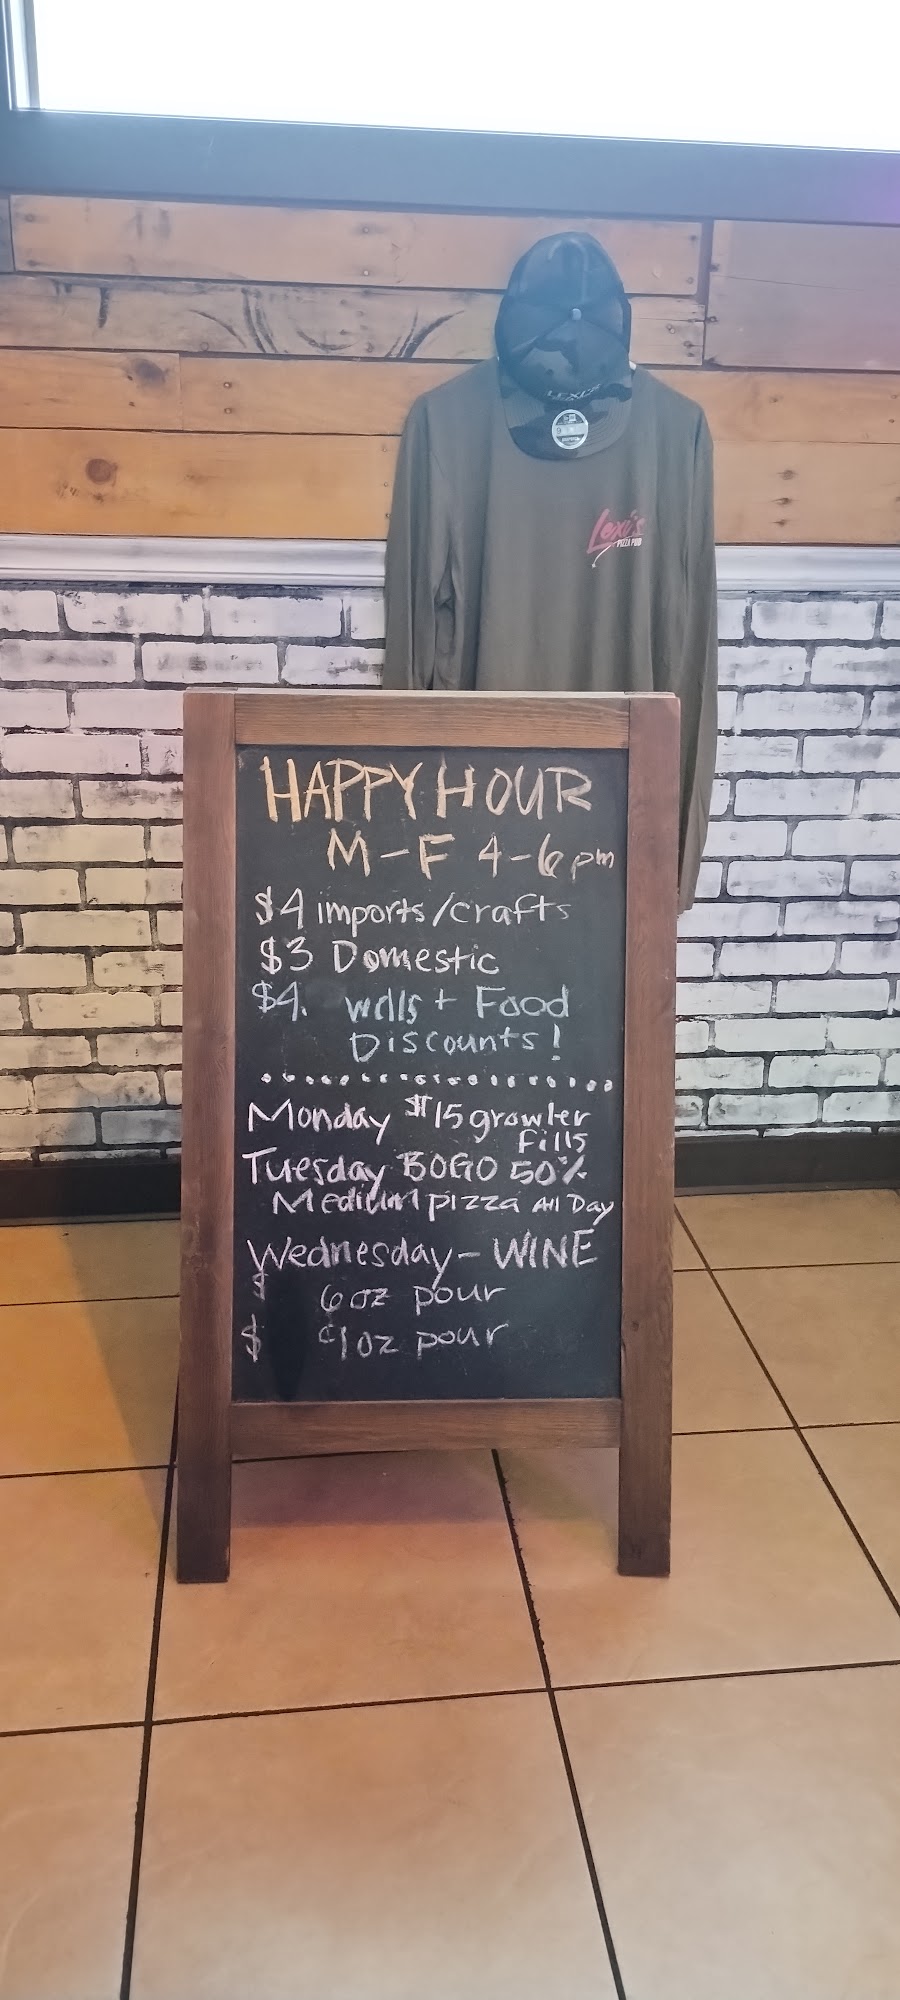 LEXI'S
Lexi's
PIZZA PUB
HAPPY HOUR
M-F 4-6pm
$4 imports/crafts
$3 Domestic
$4. wells + Food
Discounts!
Monday $15 growler
Fills
Tuesday BOGO 50%
Medium pizza All Day
Wednesday - WINE
$ 6oz pour
$ 9oz pour